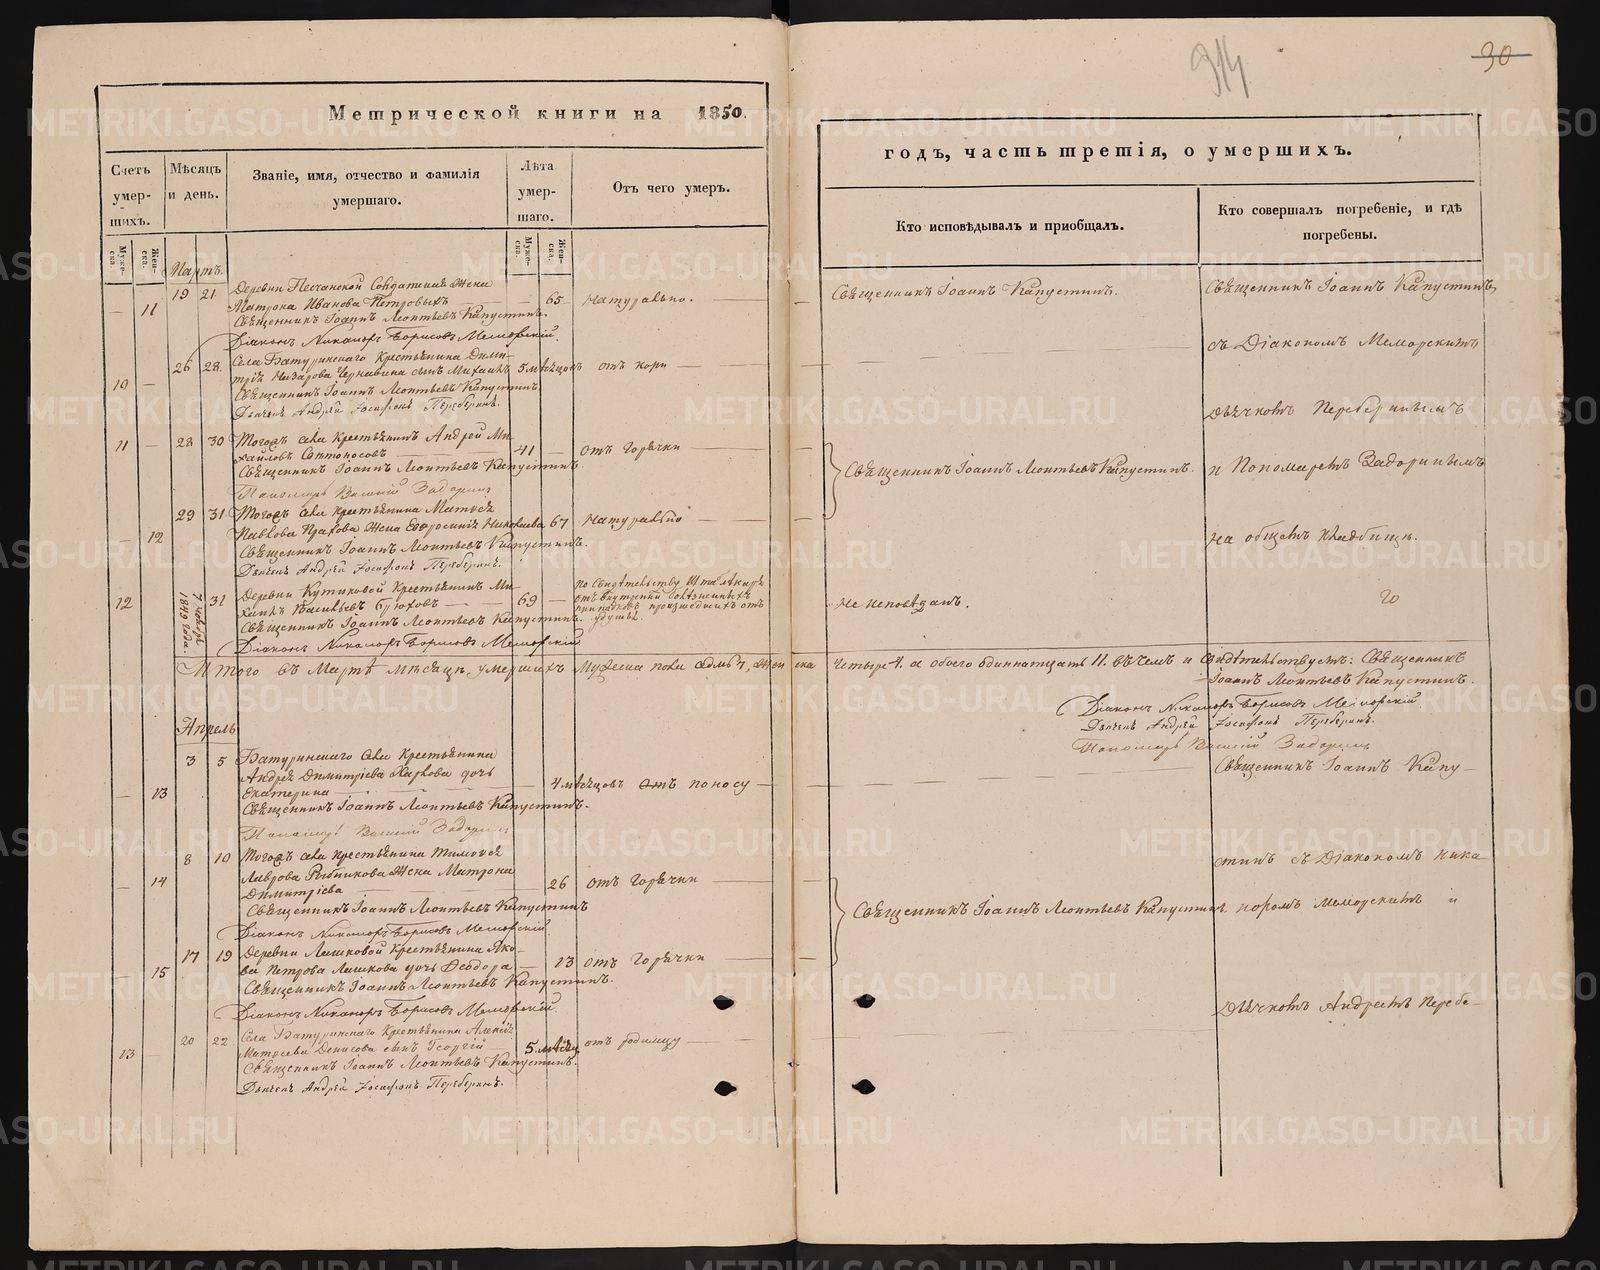 314
30
Метрической книги на 1850.
годъ, часть третія, о умершихъ.
Счетъ умер-шихъ.
Мѣсяцъ и день.
Званіе, имя, отчество и фамилія умершаго.
Лѣта умер-шаго.
Отъ чего умеръ.
Кто исповѣдывалъ и пріобщалъ.
Кто совершалъ погребеніе, и гдѣ погребены.
Муже-ска.
Жен-ска.
Муже-ска.
Жен-ска.
Мартъ.
11 19 21 Деревни Песчанской Солдатская жена
Матрона Иванова Петровыхъ 65 Натурально.
Священникъ Іоаннъ Леонтьевъ Капустинъ.
Діаконъ Никаноръ Борисовъ Меморскій.
Священникъ Іоаннъ Капустинъ.
Священникъ Іоаннъ Капустинъ,
съ Діакономъ Меморскимъ,
10 26 28. Села Батуринскаго Крестьянина Дими-
трія Назарова Чернавина сынъ Михаилъ 5 мѣсяцовъ отъ кори
Священникъ Іоаннъ Леонтьевъ Капустинъ
Дьячекъ Андрей Іосафовъ Переберинъ.
дьячкомъ Переберинымъ
11 28 30 Тогожъ села крестьянинъ Андрей Ми-
хайловъ 41 отъ Горячки
Священникъ Іоаннъ Леонтьевъ Капустинъ.
Пономарь Василій Задоринъ
Священникъ Іоаннъ Леонтьевъ Капустинъ.
и Пономаремъ Задоринымъ
12 29 31 Тогожъ села крестьянина Матвѣя
Павлова жена Евфросинія Николаева 67 Натурально
Священникъ Іоаннъ Леонтьевъ Капустинъ.
Дьячекъ Андрей Іосафовъ Переберинъ.
на общемъ кладбищѣ.
12 7 1849 года. 31 Деревни Кутиковой Крестьянинъ Ми-
хаилъ Васильевъ 69 по свидѣтельству
Священникъ Іоаннъ Леонтьевъ Капустинъ.
Діаконъ Никаноръ Борисовъ Меморскій
не исповѣданъ.
Итого въ Мартѣ мѣсяцѣ умершихъ Мужеска пола седмь 7, женска четыре 4. а обоего одиннатцать 11. въ чемъ и свидѣтельствуемъ: Священникъ
Іоаннъ Леонтьевъ Капустинъ.
Діаконъ Никаноръ Борисовъ Меморскій.
Дьячекъ Андрей Іосафовъ Переберинъ.
Пономарь Василій Задоринъ
Апрель
13 3 5 Батуринскаго села Крестьянина
Андрея Димитріева дочь
Екатерина 4 мѣсяцовъ отъ поносу
Священникъ Іоаннъ Леонтьевъ Капустинъ.
Пономарь Василій Задоринъ
Священникъ Іоаннъ Капу-
14 8 10 Тогожъ села крестьянина Тимофея
Лаврова Рыбникова жена Матрона
Димитріева 26 отъ Горячки
Священникъ Іоаннъ Леонтьевъ Капустинъ
Діаконъ Никаноръ Борисовъ Меморскій
стинъ съ Діакономъ Ника-
Священникъ Іоаннъ Леонтьевъ Капустинъ.
норомъ Меморскимъ и
15 17 19 Деревни Лашковой Крестьянина Яко-
ва Петрова Лашкова дочь Феодора 13 отъ Горячки
Священникъ Іоаннъ Леонтьевъ Капустинъ.
Діаконъ Никаноръ Борисовъ Меморскій.
Дьячкомъ Андреемъ Перебе-
13 20 22 Села Батуринскаго Крестьянина Алексія
Матвѣева Денисова сынъ Георгій 5 мѣсяц отъ родимцу
Священникъ Іоаннъ Леонтьевъ Капустинъ.
Дьячекъ Андрей Іосафовъ Переберинъ.
METRIKI.GASO-URAL.RU